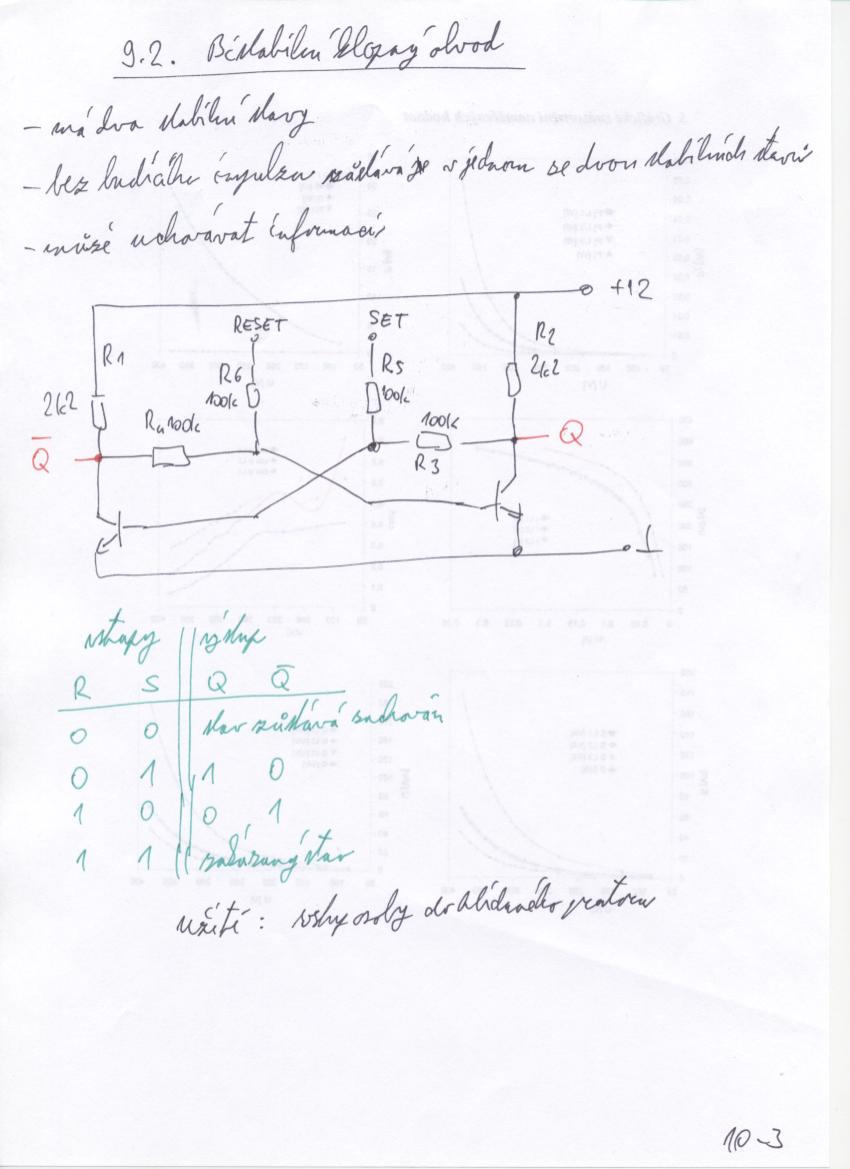 9.2. Bistabilní klopný obvod
- má dva stabilní stavy
- bez budícího impulzu zůstává je v jednom se dvou stabilních stavů
- může uchovávat informaci
+12
RESET SET
R1 R6 R5 R2
2k2 100k 100k 2k2
R4 100k 100k
Q̅ Q
R3
vstupy výstup
R S Q Q̅
0 0 stav zůstává zachován
0 1 1 0
1 0 0 1
1 1 zakázaný stav
užití: vstup osoby do hlídaného prostoru
10-3